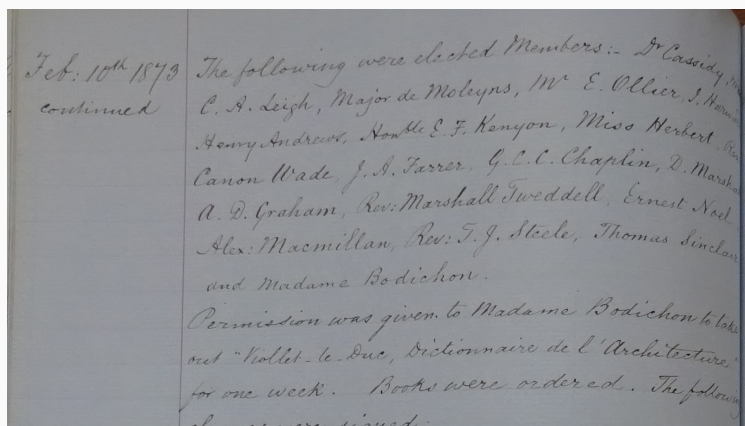 Feb: 10th 1873
continued
The following were elected Members:- Dr Cassidy,
C. A. Leigh, Major de Moleyns, Mr E. Ollier, J.
Henry Andrews, Honble E. F. Kenyon, Miss Herbert,
Canon Wade, J. A. Farrer, G. C. C. Chaplin, D.
A. D. Graham, Rev: Marshall Tweddell, Ernest Noel
Alex: Macmillan, Rev: T. J. Steele, Thomas Sinclair
and Madame Bodichon.
Permission was given to Madame Bodichon to take
out "Viollet-le-Duc, Dictionnaire de l'Architecture"
for one week. Books were ordered. The following
signed